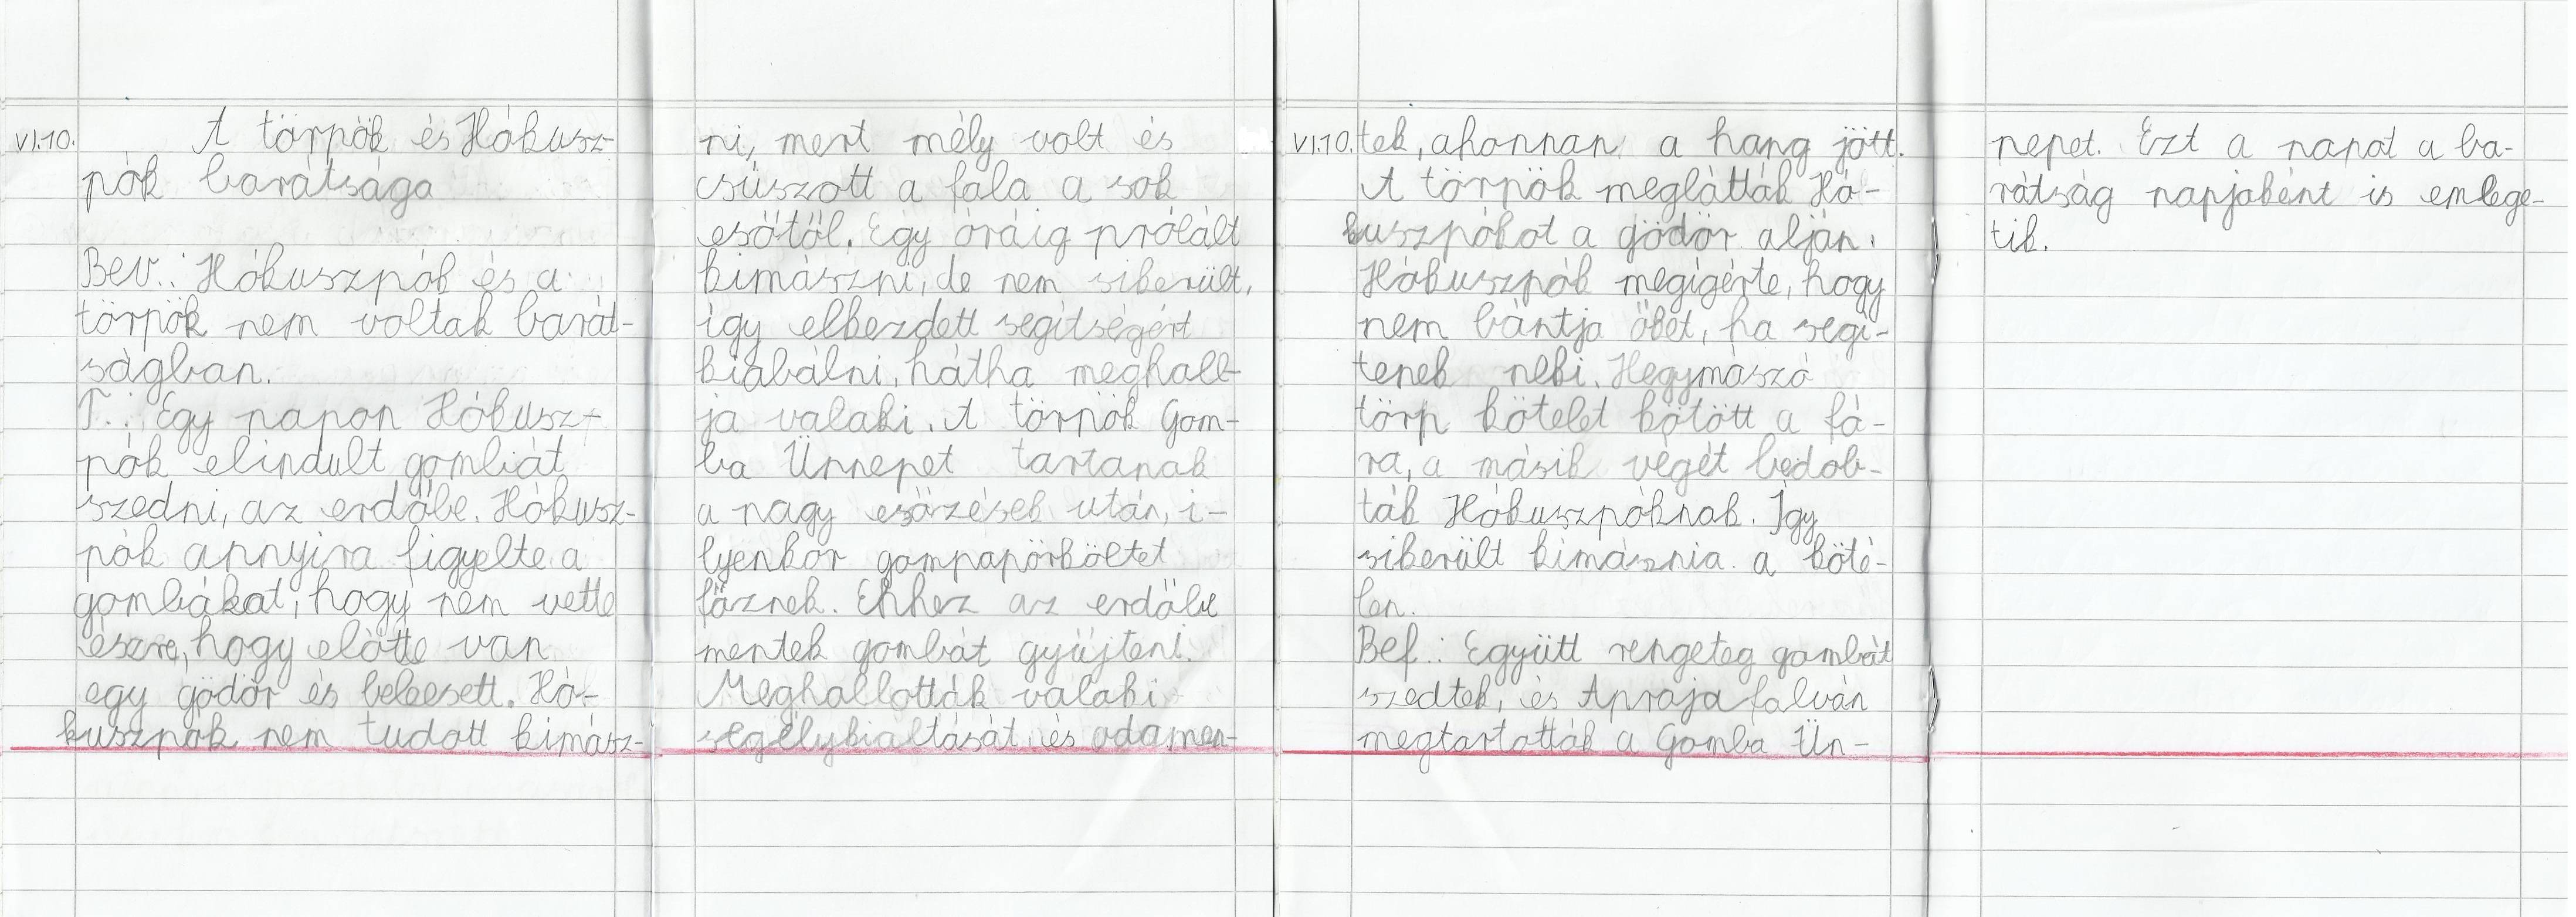 VI.10. A törpök és Hókusz-
pók barátsága
Bev.: Hókuszpók és a
törpök nem voltak barát-
ságban.
T.: Egy napon Hókusz-
pók elindult gombát
szedni, az erdőbe. Hókusz-
pók annyira figyelte a
gombákat, hogy nem vette
észre, hogy előtte van
egy gödör és beleesett. Hó-
kuszpók nem tudott kimász-
ni, mert mély volt és
csúszott a fala a sok
esőtől. Egy óráig próbált
kimászni, de nem sikerült,
így elkezdett segítségért
kiabálni, hátha meghall-
ja valaki. A törpök Gom-
ba Ünnepet tartanak
a nagy esőzések után, i-
lyenkor gompapörköltet
főznek. Ehhez az erdőbe
mentek gombát gyűjteni.
Meghallották valaki
segélykiáltását és odamen-
VI.10. tek, ahonnan a hang jött.
A törpök meglátták Hó-
kuszpókot a gödör alján.
Hókuszpók megígérte, hogy
nem bántja őket, ha segí-
tenek neki. Hegymászó
törp kötelet kötött a fá-
ra, a másik végét bedob-
ták Hókuszpóknak. Így
sikerült kimásznia a köté-
len.
Bef.: Együtt rengeteg gombát
szedtek, és Apraja falván
megtartották a Gomba Ün-
nepet. Ezt a napot a ba-
rátság napjaként is emlege-
tik.